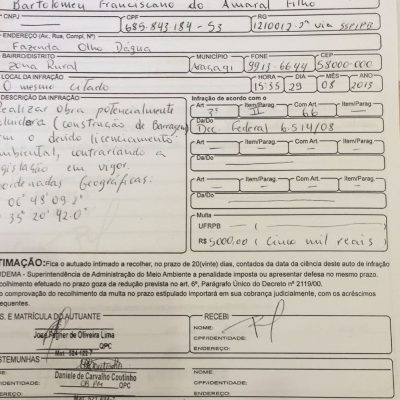 Bartolomeu Franciscano do Amaral Filho
CNPJ CPF RG
685.843.184-53 1210012-2ª via SSP/PB
ENDEREÇO (Av., Rua, Compl, Nº)
Fazenda Olho Dágua
BAIRRO/DISTRITO MUNICÍPIO FONE CEP
Zona Rural 9913-6644 58000-000
LOCAL DA INFRAÇÃO HORA DIA MÊS ANO
O mesmo citado 15:35 29 08 2013
DESCRIÇÃO DA INFRAÇÃO Infração de acordo com o
Art. Item/Parag. Com Art. Item/Parag.
Realizar obra potencialmente 3º II 66
poluidora (construção de Barragem) Da/Do
sem o devido licenciamento Dec. Federal 6.514/08
ambiental, contrariando a Art. Item/Parag. Com Art. Item/Parag.
legislação em vigor. Da/Do
Coordenadas Geográficas: Art. Item/Parag. Com Art. Item/Parag.
06º 48' 09.2" Da/Do
35º 20' 42.0" Multa
UFRPB
R$ 5000,00 (cinco mil reais)
TIMAÇÃO: Fica o autuado intimado a recolher, no prazo de 20(vinte) dias, contados da data da ciência deste auto de infração
UDEMA - Superintendência de Administração do Meio Ambiente a penalidade imposta ou apresentar defesa no mesmo prazo.
colhimento efetuado no prazo goza da redução prevista no art. 6º, Parágrafo Único do Decreto nº 2119/00.
o comprovação do recolhimento da multa no prazo estipulado importará em sua cobrança judicialmente, com os acréscimos
equentes.
S. E MATRÍCULA DO AUTUANTE RECEBI
NOME:
José Wagner de Oliveira Lima CPF/IDENTIDADE:
QPC ENDEREÇO:
Mat. 524.122-7
STEMUNHAS
NOME:
Daniele de Carvalho Coutinho CPF/IDENTIDADE:
/IDENTIDADE: CB PM QPC
EREÇO: ENDEREÇO: